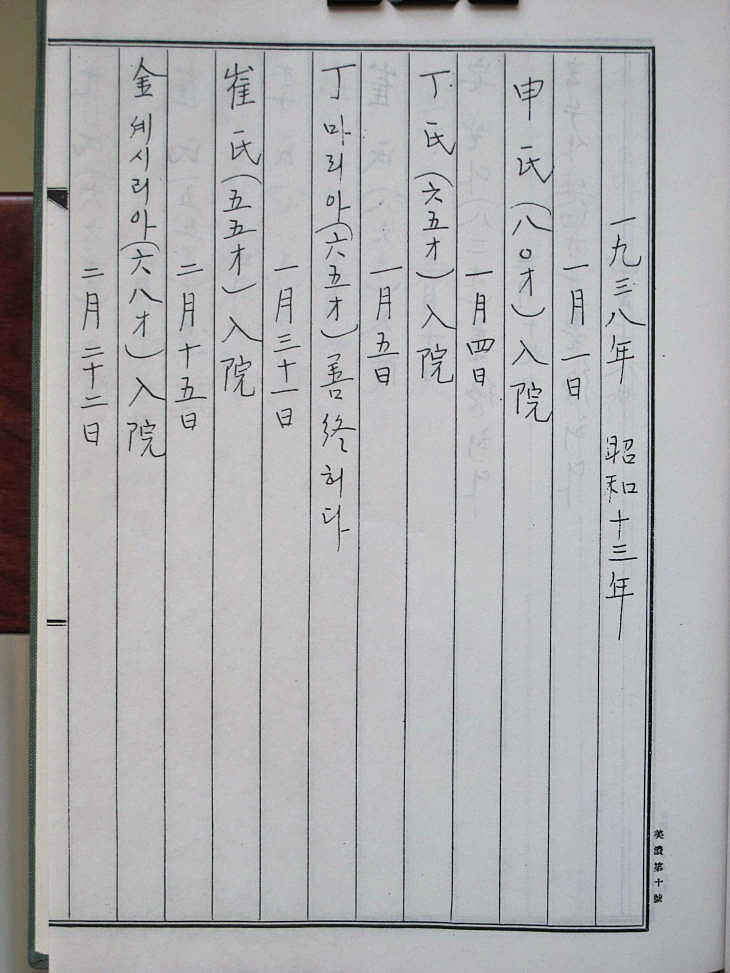 一九三八年 昭和十三年
一月一日
申 氏(八〇才)入院
一月四日
丁 氏(六五才)入院
一月五日
丁 마리아(六五才)善終허다
一月三十一日
崔 氏(五五才)入院
二月十五日
金 세시리아(六八才)入院
二月二十二日
第十號